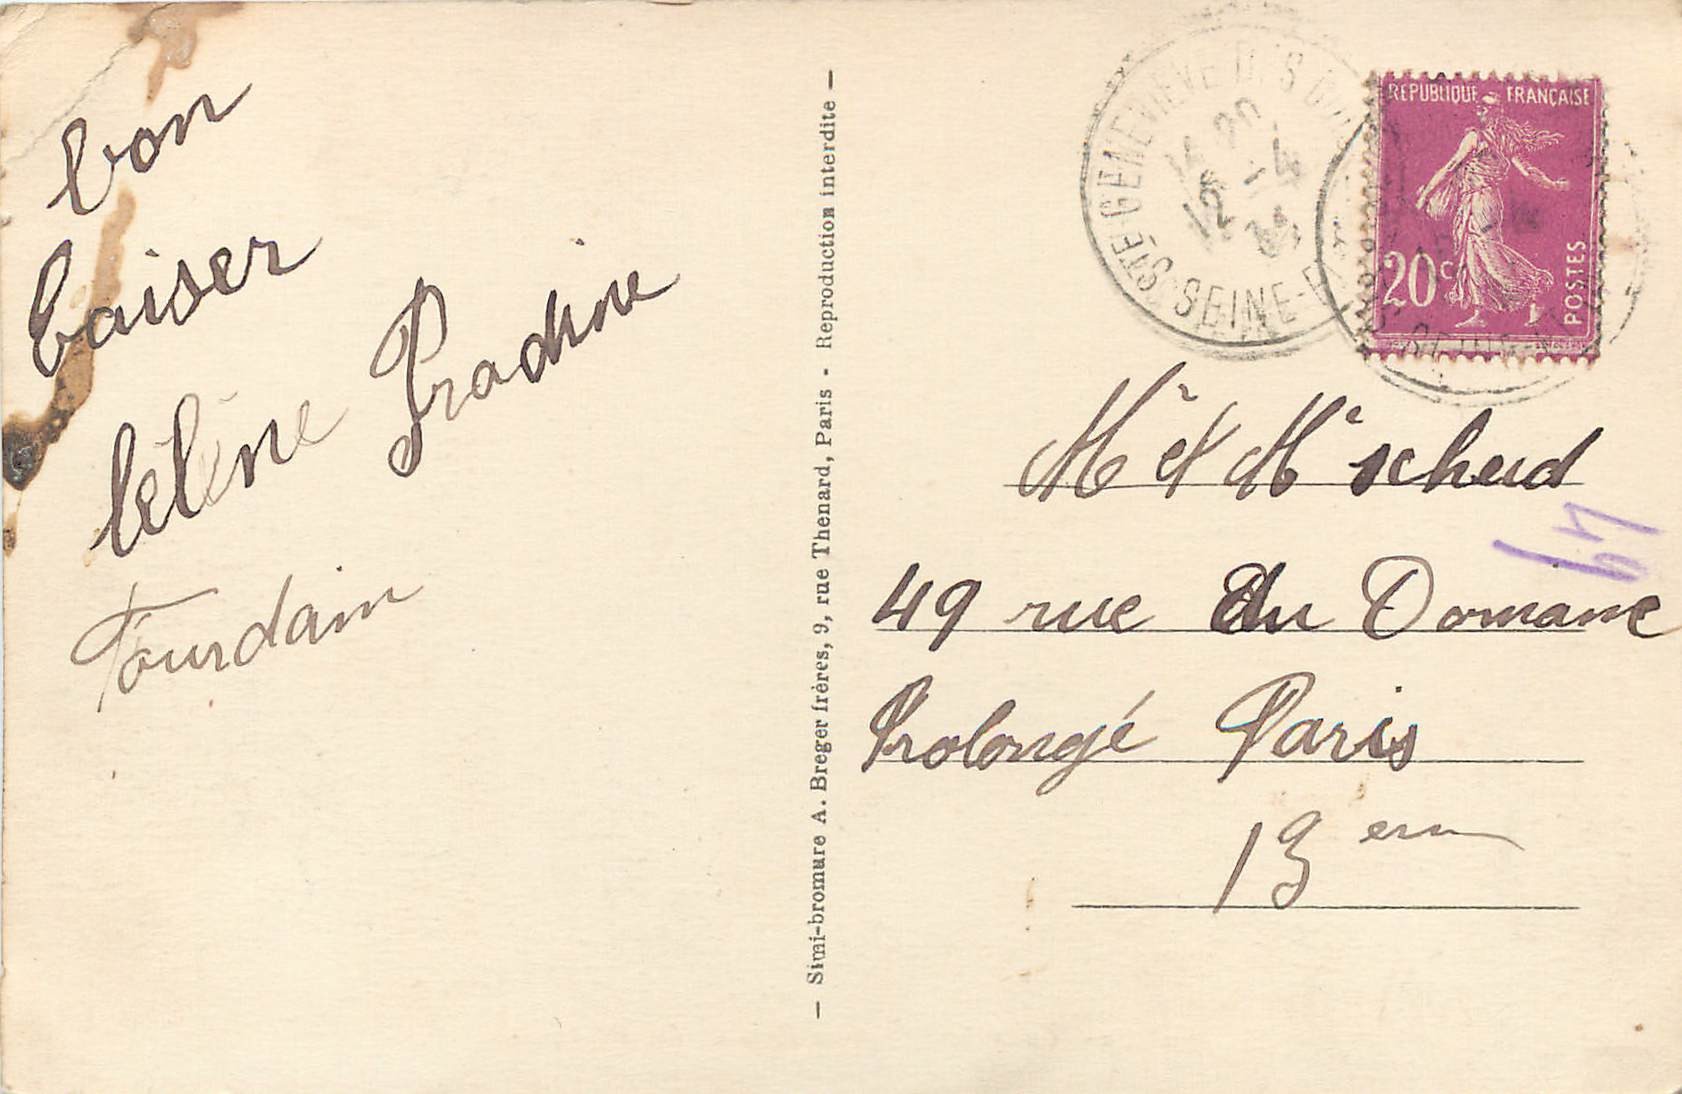 bon
baiser
Célène Pradine
Fourdain
— Simi-bromure A. Breger frères, 9, rue Thenard, Paris - Reproduction interdite —
STE GENEVIEVE DES
SEINE-
12 -4
REPUBLIQUE FRANÇAISE
20c
POSTES
Mr et Mr scheid
67
49 rue du Domaine
Prolongé Paris
13 em